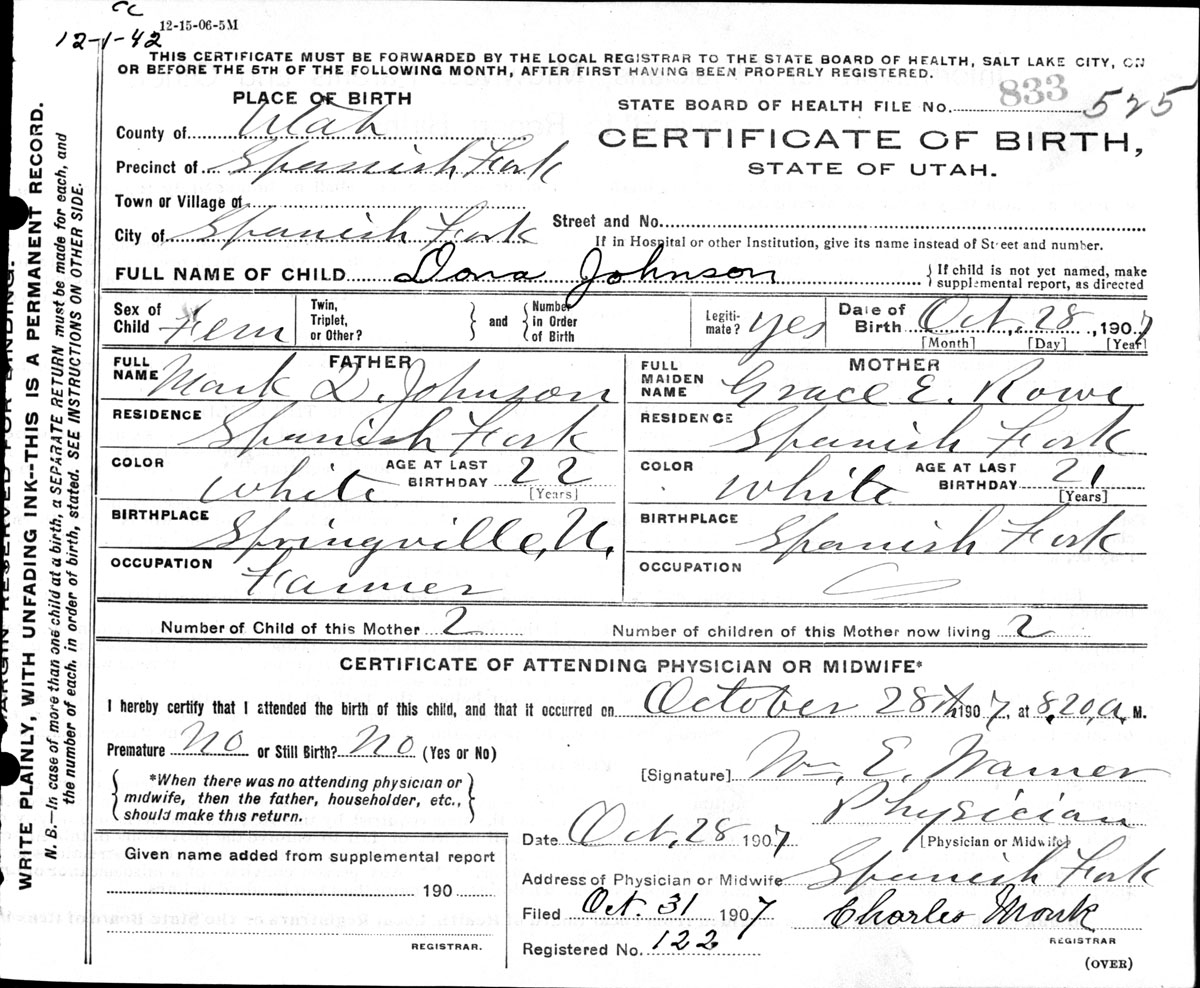 cc
12-1-42
12-15-06-5M
THIS CERTIFICATE MUST BE FORWARDED BY THE LOCAL REGISTRAR TO THE STATE BOARD OF HEALTH, SALT LAKE CITY, ON
OR BEFORE THE 5TH OF THE FOLLOWING MONTH, AFTER FIRST HAVING BEEN PROPERLY REGISTERED.
PLACE OF BIRTH
STATE BOARD OF HEALTH FILE No. 833 525
County of Utah
CERTIFICATE OF BIRTH,
STATE OF UTAH.
Precinct of Spanish Fork
Town or Village of
Street and No.
City of Spanish Fork
If in Hospital or other Institution, give its name instead of Street and number.
FULL NAME OF CHILD Dora Johnson
{ If child is not yet named, make
supplemental report, as directed
Sex of Child Fem
Twin, Triplet, or Other? } and { Number in Order of Birth
Legiti-mate? yes
Date of Birth Oct. 28, 1907
[Month] [Day] [Year]
FATHER
FULL NAME Mark D. Johnson
RESIDENCE Spanish Fork
COLOR White AGE AT LAST BIRTHDAY 22 [Years]
BIRTHPLACE Springville, U.
OCCUPATION Farmer
MOTHER
FULL MAIDEN NAME Grace E. Rowe
RESIDENCE Spanish Fork
COLOR White AGE AT LAST BIRTHDAY 21 [Years]
BIRTHPLACE Spanish Fork
OCCUPATION
Number of Child of this Mother 2 Number of children of this Mother now living 2
CERTIFICATE OF ATTENDING PHYSICIAN OR MIDWIFE*
I hereby certify that I attended the birth of this child, and that it occurred on October 28th 1907, at 8.20, a. M.
Premature No or Still Birth? No (Yes or No)
{ *When there was no attending physician or
midwife, then the father, householder, etc.,
should make this return. }
[Signature] Wm. E. Warner
Physician
[Physician or Midwife]
Date Oct, 28 1907
Given name added from supplemental report
190
REGISTRAR.
Address of Physician or Midwife Spanish Fork
Filed Oct. 31 1907 Charles Monk
REGISTRAR
Registered No. 122
(OVER)
MARGIN RESERVED FOR BINDING.
WRITE PLAINLY, WITH UNFADING INK--THIS IS A PERMANENT RECORD.
N. B.—In case of more than one child at a birth, a SEPARATE RETURN must be made for each, and
the number of each, in order of birth, stated. SEE INSTRUCTIONS ON OTHER SIDE.